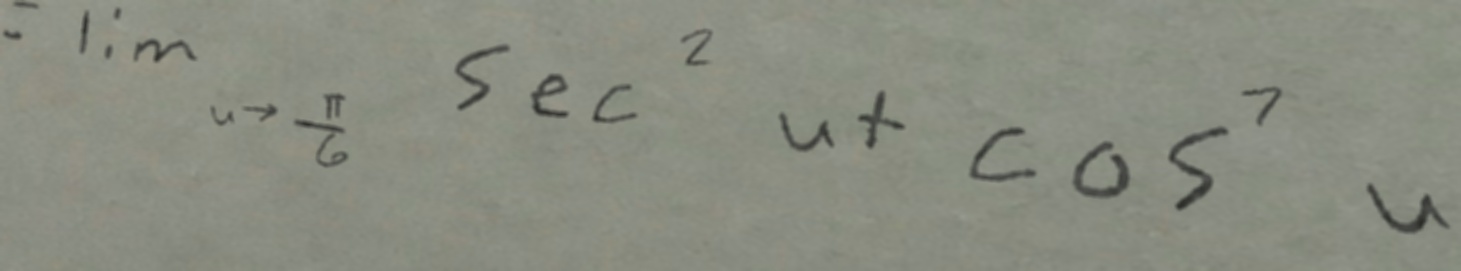 = lim u→π/6 sec² u + cos⁷ u